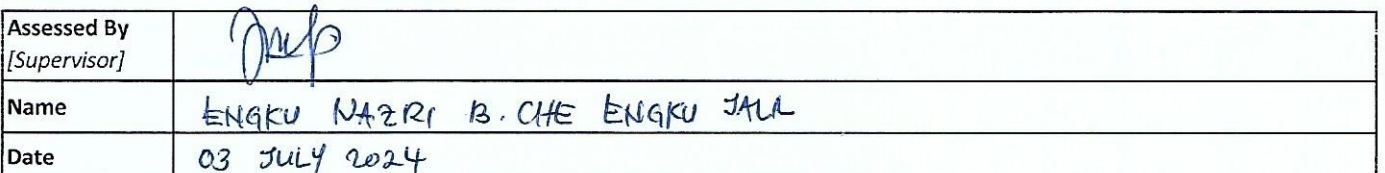 Assessed By
[Supervisor]
Name ENGKU NAZRI B. CHE ENGKU JALA
Date 03 JULY 2024